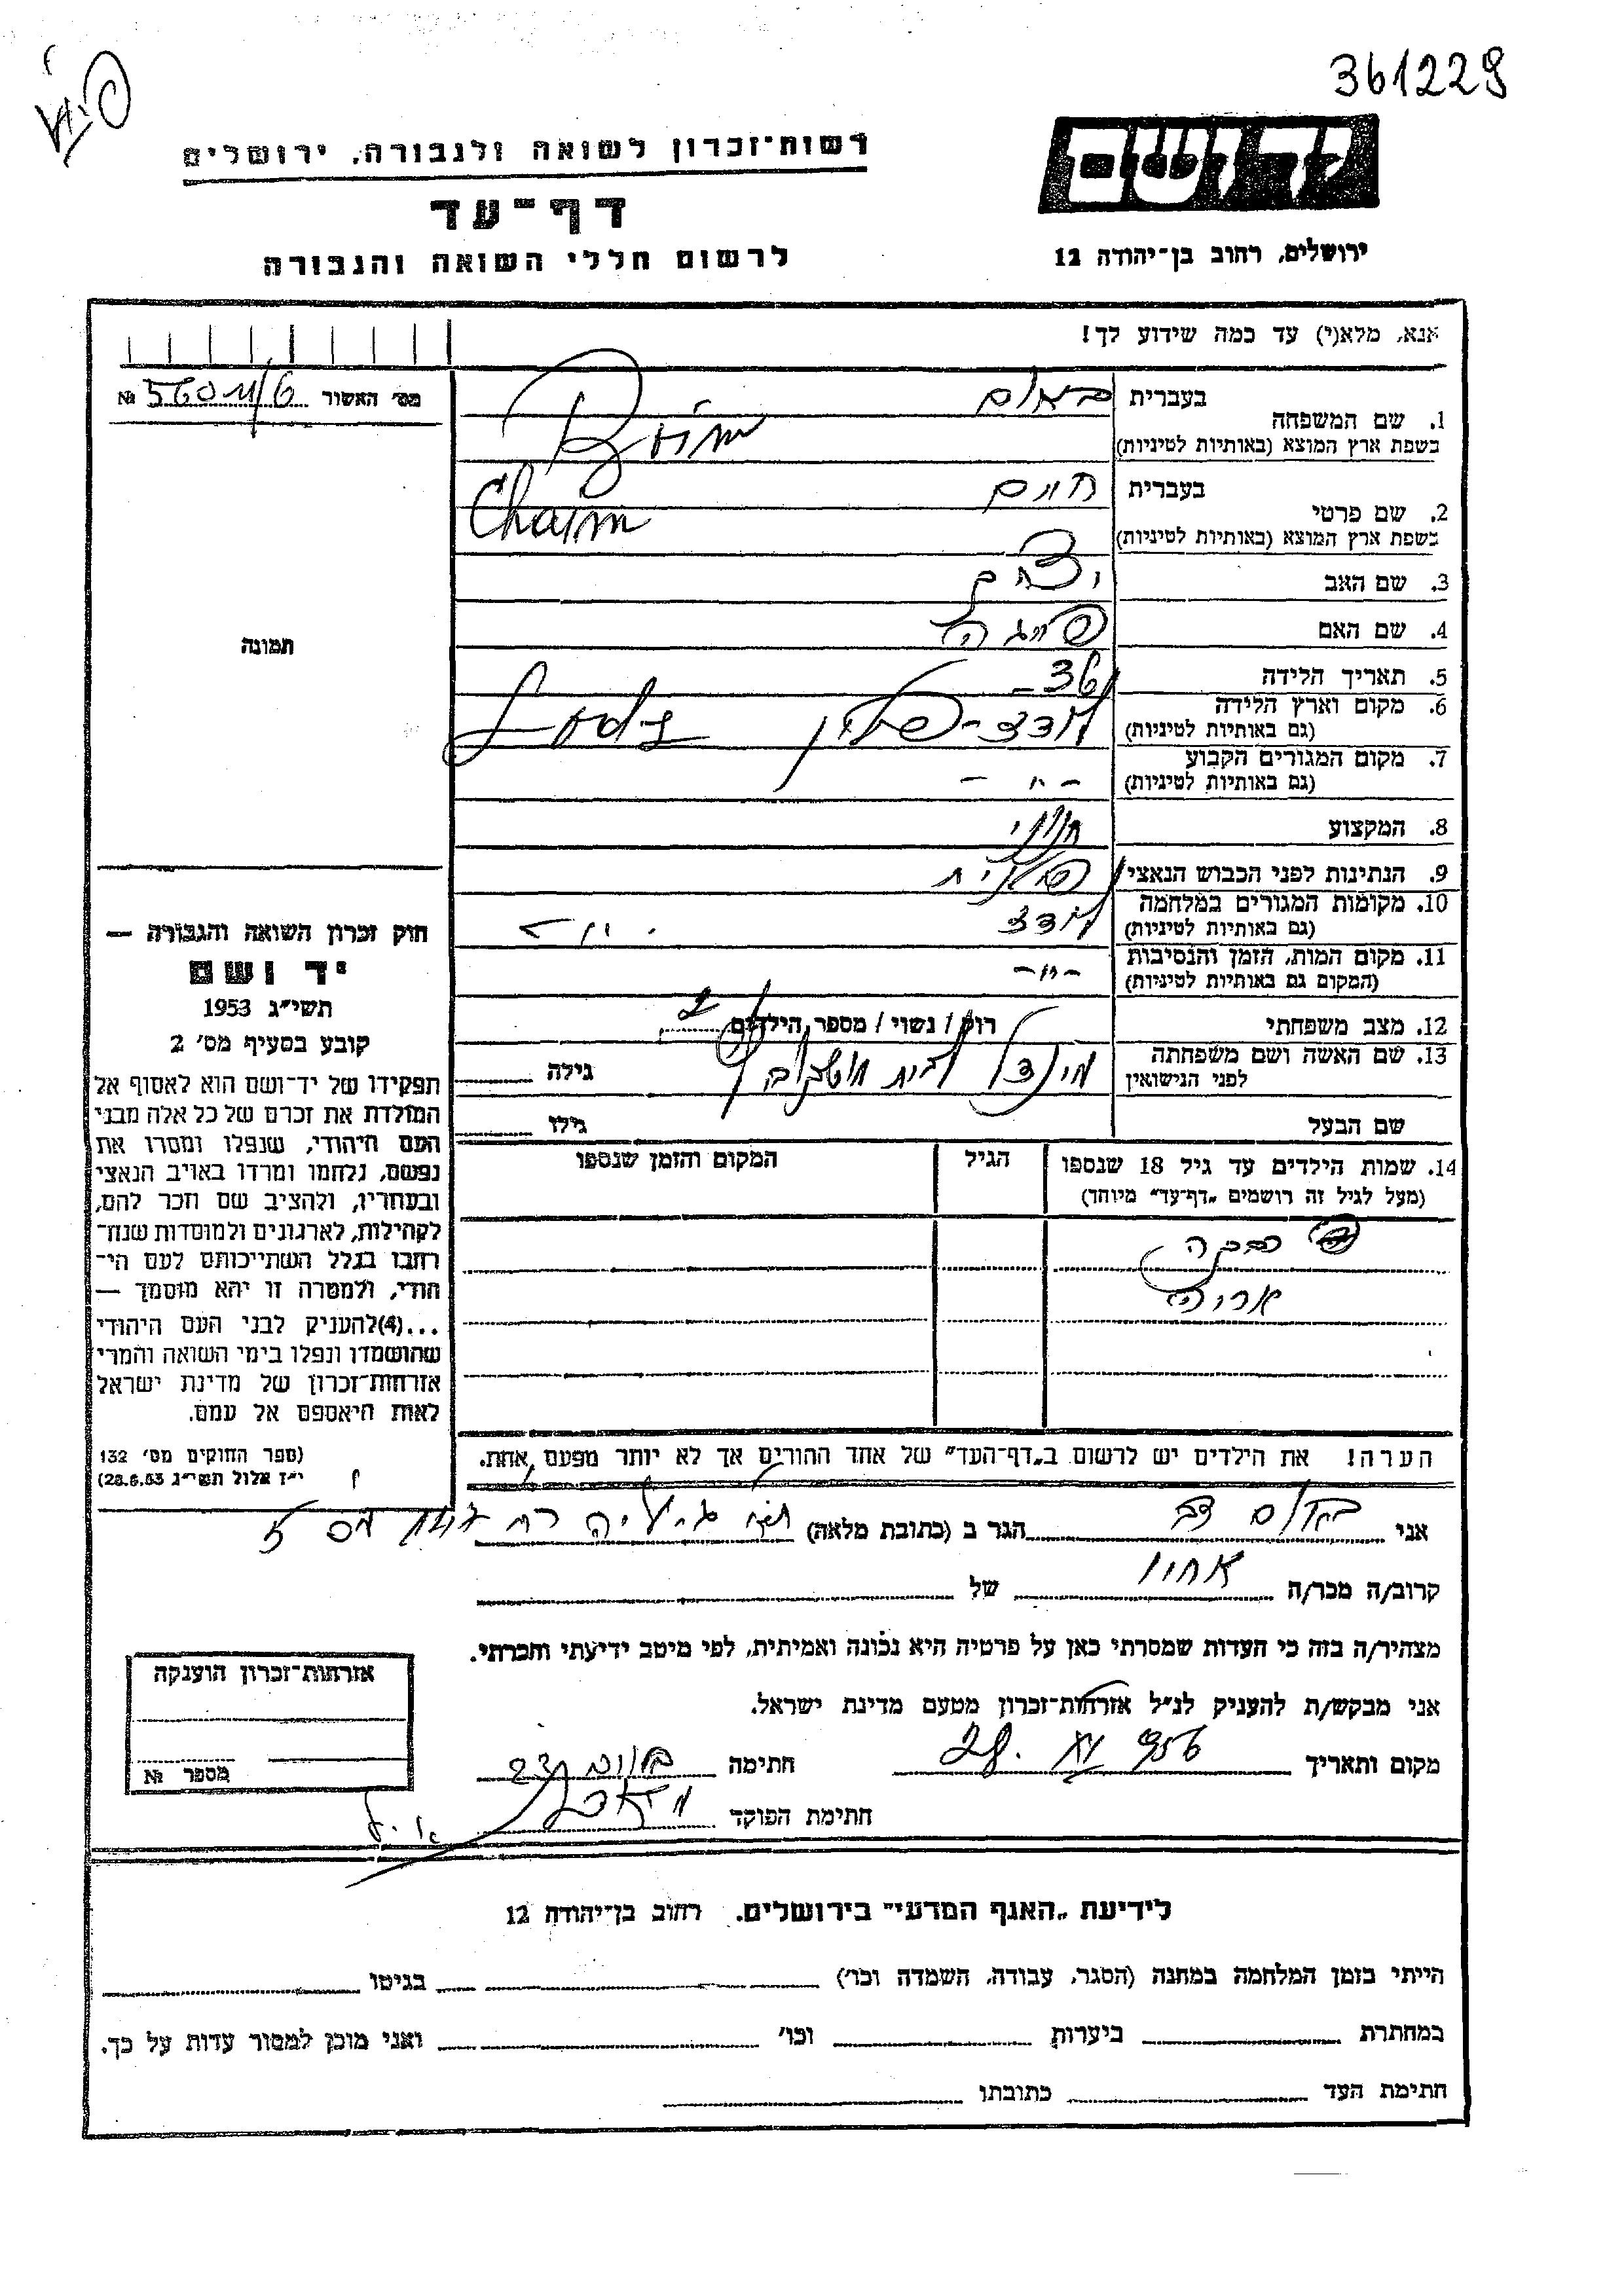 361229
רשות־זכרון לשואה ולגבורה, ירושלים
יד ושם
דף־עד
ירושלים, רחוב בן־יהודה 12
לרשום חללי השואה והגבורה
אנא, מלא(י) עד כמה שידוע לך!
מס׳ האשור №
1. שם המשפחה בעברית
בשפת ארץ המוצא (באותיות לטיניות)
2. שם פרטי בעברית חיים
בשפת ארץ המוצא (באותיות לטיניות) Chaim
3. שם האב
4. שם האם
5. תאריך הלידה 36
6. מקום וארץ הלידה לודז - פולין Lodz
(גם באותיות לטיניות)
7. מקום המגורים הקבוע - " -
(גם באותיות לטיניות)
8. המקצוע
9. הנתינות לפני הכבוש הנאצי פולנית
10. מקומות המגורים במלחמה לודז
(גם באותיות לטיניות)
11. מקום המות, הזמן והנסיבות - " -
(המקום גם באותיות לטיניות)
12. מצב משפחתי רווק / נשוי / מספר הילדים 2
13. שם האשה ושם משפחתה
לפני הנישואין גילה
שם הבעל גילו
14. שמות הילדים עד גיל 18 שנספו הגיל המקום והזמן שנספו
(מעל לגיל זה רושמים „דף־עד” מיוחד)
רבקה
אריה
הערה! את הילדים יש לרשום ב„דף־העד” של אחד ההורים אך לא יותר מפעם אחת.
תמונה
חוק זכרון השואה והגבורה —
יד ושם
תשי״ג 1953
קובע בסעיף מס׳ 2
תפקידו של יד־ושם הוא לאסוף אל
המולדת את זכרם של כל אלה מבני
העם היהודי, שנפלו ומסרו את
נפשם, נלחמו ומרדו באויב הנאצי
ובעוזריו, ולהציב שם וזכר להם,
לקהילות, לארגונים ולמוסדות שנח־
רבו בגלל השתייכותם לעם הי־
הודי, ולמטרה זו יהא מוסמך —
...(4)להעניק לבני העם היהודי
שהושמדו ונפלו בימי השואה והמרי
אזרחות־זכרון של מדינת ישראל
לאות היאספם אל עמם.
(ספר החוקים מס׳ 132
י״ז אלול תשי״ג 28.8.53)
אני הגר ב (כתובת מלאה)
קרוב/ה מכר/ה אחיו של
מצהיר/ה בזה כי העדות שמסרתי כאן על פרטיה היא נכונה ואמיתית, לפי מיטב ידיעתי והכרתי.
אני מבקש/ת להעניק לנ״ל אזרחות־זכרון מטעם מדינת ישראל.
מקום ותאריך חתימה
חתימת הפוקד
אזרחות־זכרון הוענקה
מספר №
לידיעת „האגף המדעי” בירושלים. רחוב בן־יהודה 12
הייתי בזמן המלחמה במחנה (הסגר, עבודה, השמדה וכו׳) בגיטו
במחתרת ביערות וכו׳ ואני מוכן למסור עדות על כך.
חתימת העד כתובתו